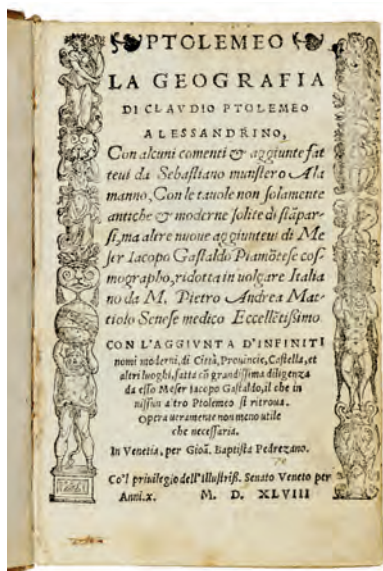 PTOLEMEO
LA GEOGRAFIA
DI CLAVDIO PTOLEMEO
ALESSANDRINO,
Con alcuni comenti & aggiunte fat
teui da Sebastiano munstero Ala
manno, Con le tauole non solamente
antiche & moderne solite di stãpar-
si, ma altre nuoue aggiunteui di Me
ser Iacopo Gastaldo Piamõtese cos-
mographo, ridotta in uolgare Italia
no da M. Pietro Andrea Mat-
tiolo Senese medico Eccellẽtissimo
CON L'AGGIVNTA D'INFINITI
nomi moderni, di Città, Prouincie, Castella, et
altri luoghi, fatta cõ grandissima diligenza
da esso Meser Iacopo Gastaldo, il che in
nissun altro Ptolemeo si ritroua.
Opera ueramente non meno utile
che necessaria.
In Venetia, per Gioã. Baptista Pedrezano.
Co'l priuilegio dell'Illustriss. Senato Veneto per
Anni.x. M. D. XLVIII